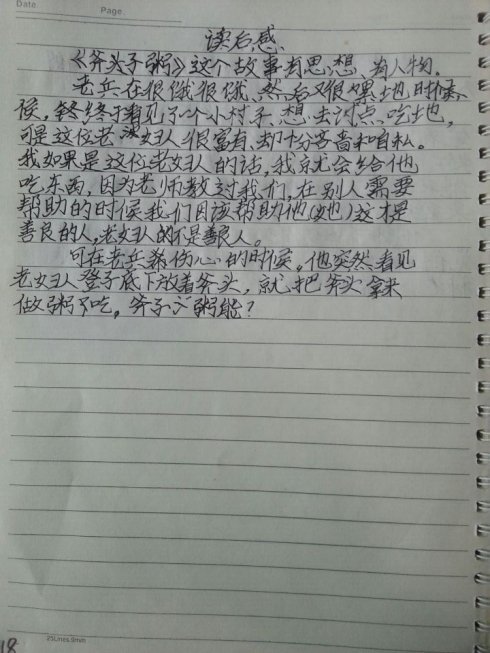 Date.
Page.
读后感
《斧头子粥》这个故事有思想、有人物。
老兵在很饿很饿,然后又很累地时
候,终于看见了一个小村子、想去讨点吃地,
可是这位老妇人很富有,却十分吝啬和自私。
我如果是这位老妇人的话,我就会给他
吃东西,因为老师教过我们,在别人需要
帮助的时候我们因该帮助他(她)这才是
善良的人,老妇人的不是善良人。
可在老兵伤心的时候。他突然看见
老妇人登子底下放着斧头,就把斧头拿来
做粥了吃。斧子 粥能?
18
25Lines.9mm